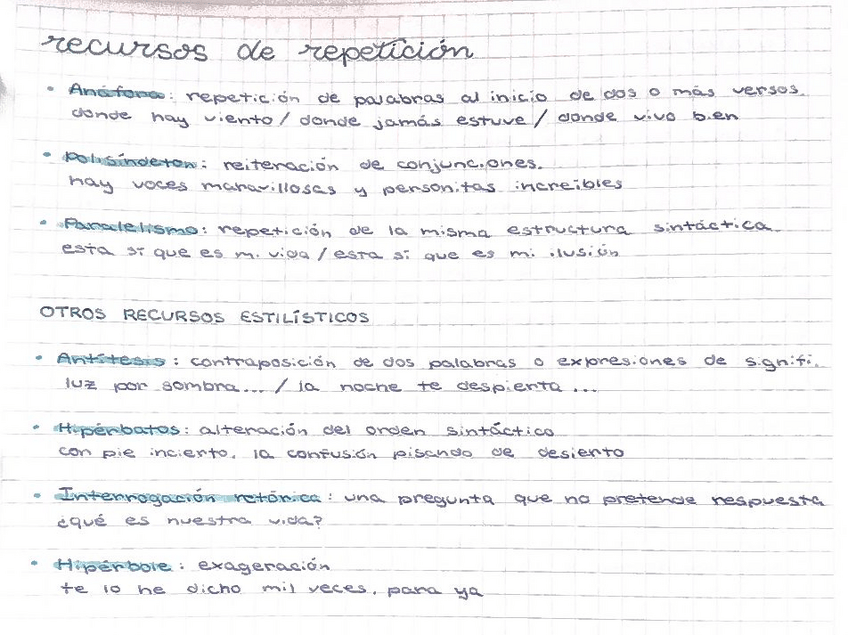 recursos de repetición
• Anáfora: repetición de palabras al inicio de dos o más versos.
donde hay viento / donde jamás estuve / donde vivo bien
• Polisíndeton: reiteración de conjunciones.
hay voces maravillosas y personitas increíbles
• Paralelismo: repetición de la misma estructura sintáctica.
esta sí que es mi vida / esta sí que es mi ilusión
OTROS RECURSOS ESTILÍSTICOS
• Antítesis: contraposición de dos palabras o expresiones de signifi.
luz por sombra... / la noche te despierta ...
• Hipérbatos: alteración del orden sintáctico
con pie incierto, la confusión pisando de desierto
• Interrogación retórica: una pregunta que no pretende respuesta
¿qué es nuestra vida?
• Hipérbole: exageración
te lo he dicho mil veces, para ya